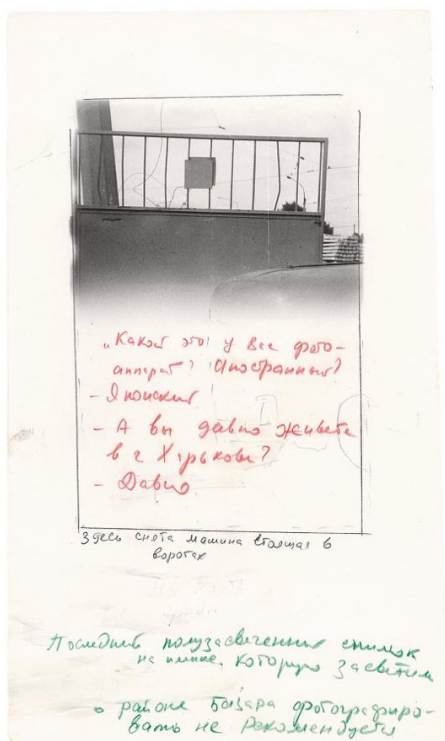 „Какой это у вас фото-
аппарат? Иностранный?
- Японский
- А вы давно живете
в г Харькове?
- Давно
Здесь снята машина стоящая в
воротах
Последний полузасвеченный снимок
на пленке, которую засветили
в районе базара фотографиро-
вать не рекомендуется